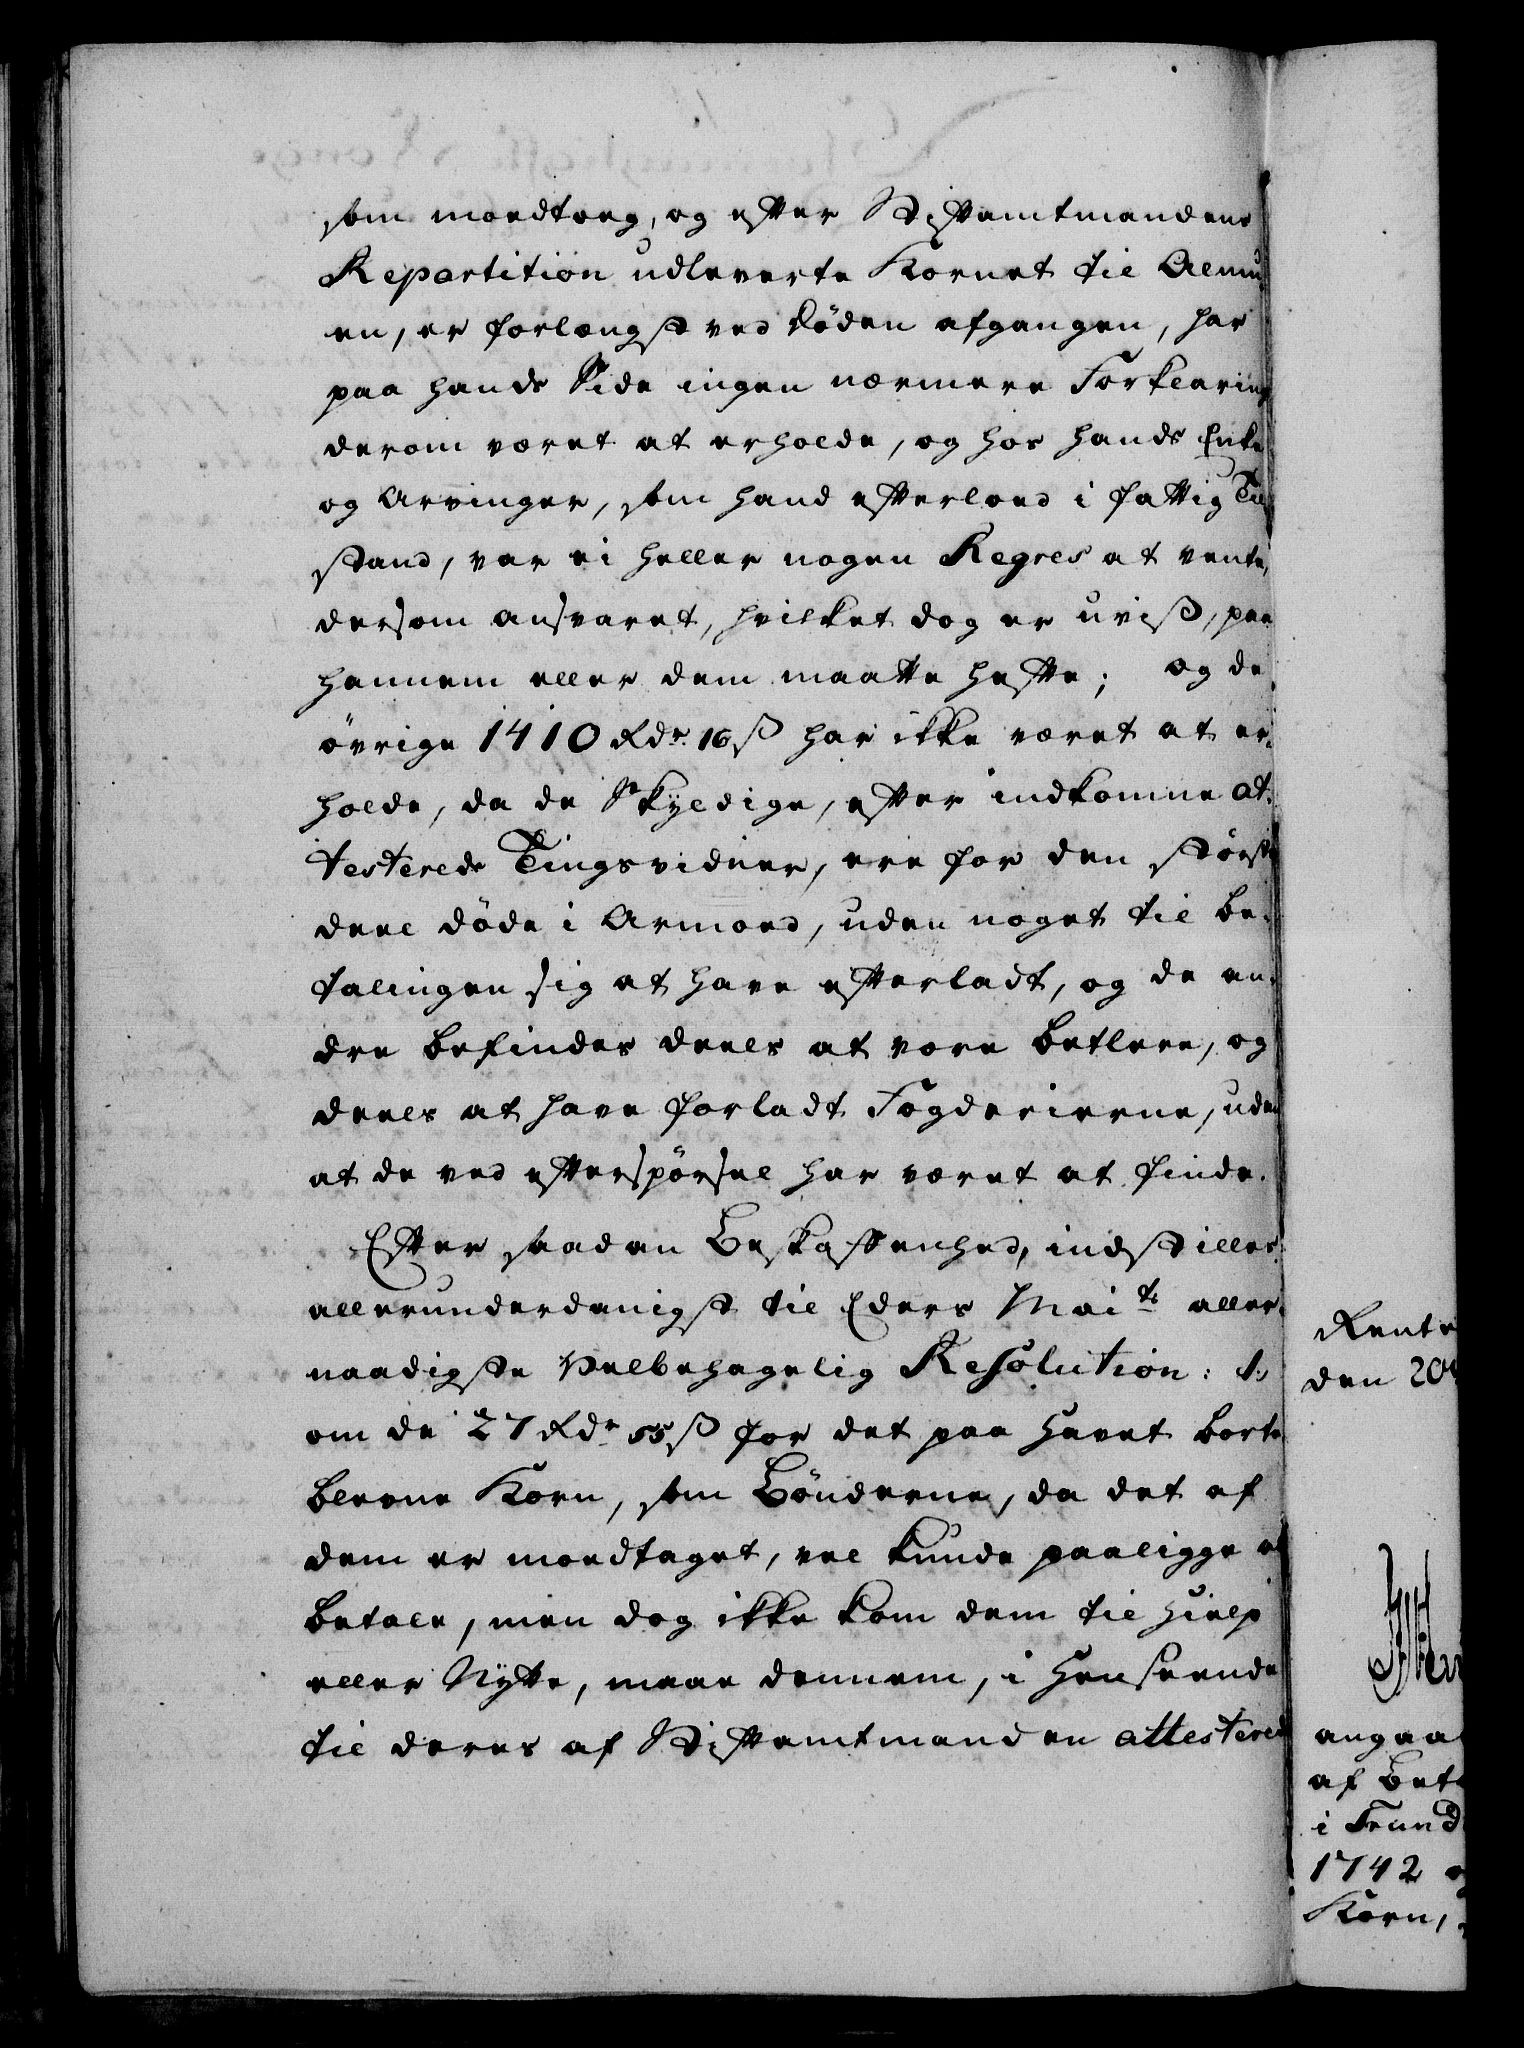 som modtoeg, og efter Stiftamtmandens
Repartition udleverte Kornet til Almu¬
en, er forlængst ved døden afgangen, har
paa hands Side ingen nærmere Forklaring
derom været at erholde, og hos hands Enke
og Arvinger, som hand efterloed i fattig Til¬
stand, var ei heller nogen Regres at vente,
dersom ansvaret, hvilket dog er uvist, paa
hannem eller dem maatte hefte; og de
övrige 1410 Rdr. 16 ß har ikke været at er¬
holde, da de Skyldige, efter indkomne at¬
testerede Tingsvidner, ere for den störste
deel døde i Armoed, uden noget til be¬
talingen sig at have efterladt, og de an¬
dre befindes deels at være betlere, og
deels at have forladt Fogderierne, uden
at de ved efterspörsel har været at finde.
Efter saadan Beskaffenhed, indstilles
allerunderdanigst til Eders Maits aller¬
naadigste Velbehagelig Resolution: 1.
om de 27 Rdr 55 ß for det paa Havet borte
blevne Korn, som Bönderne, da det af
dem er modtaget, vel kunde paaligge at
betale, men dog ikke kom dem til Hielp
eller Nytte, maae dennem, i Henseende
til deres af Stiftamtmanden attesterede
Rente
den 20
angaa
af Bet
i Trund
1742
Korn,